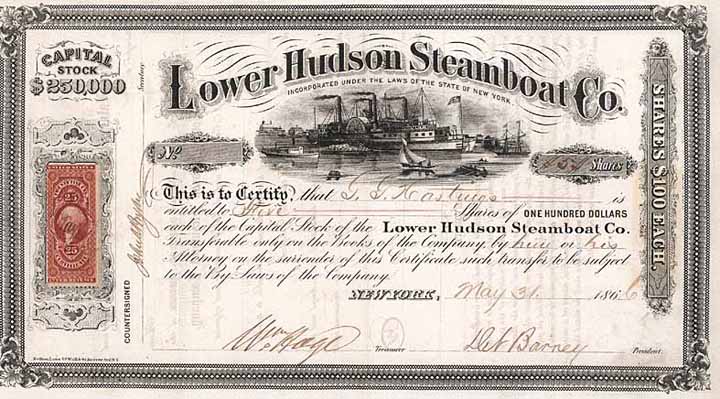 CAPITAL
STOCK
$250,000
Secretary.
Lower Hudson Steamboat Co.
INCORPORATED UNDER THE LAWS OF THE STATE OF NEW YORK
No
Shares
SHARES $100 EACH.
25
25
This is to Certify, that G. G. Hastings is
entitled to Five Shares of ONE HUNDRED DOLLARS
each of the Capital Stock of the Lower Hudson Steamboat Co.
Transferable only on the Books of the Company, by him or his
Attorney on the surrender of this Certificate such transfer to be subject
to the By Laws of the Company.
NEW YORK, May 31 1866
COUNTERSIGNED
Wm Hage Treasurer
Barney President.